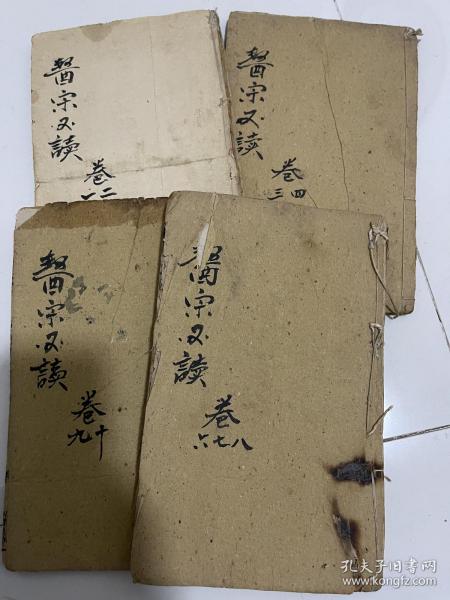 醫宗必讀
卷
一二
醫宗必讀
卷
三四
醫宗必讀
卷
九十
醫宗必讀
卷
六七八
孔夫子旧书网
www.kongfz.com